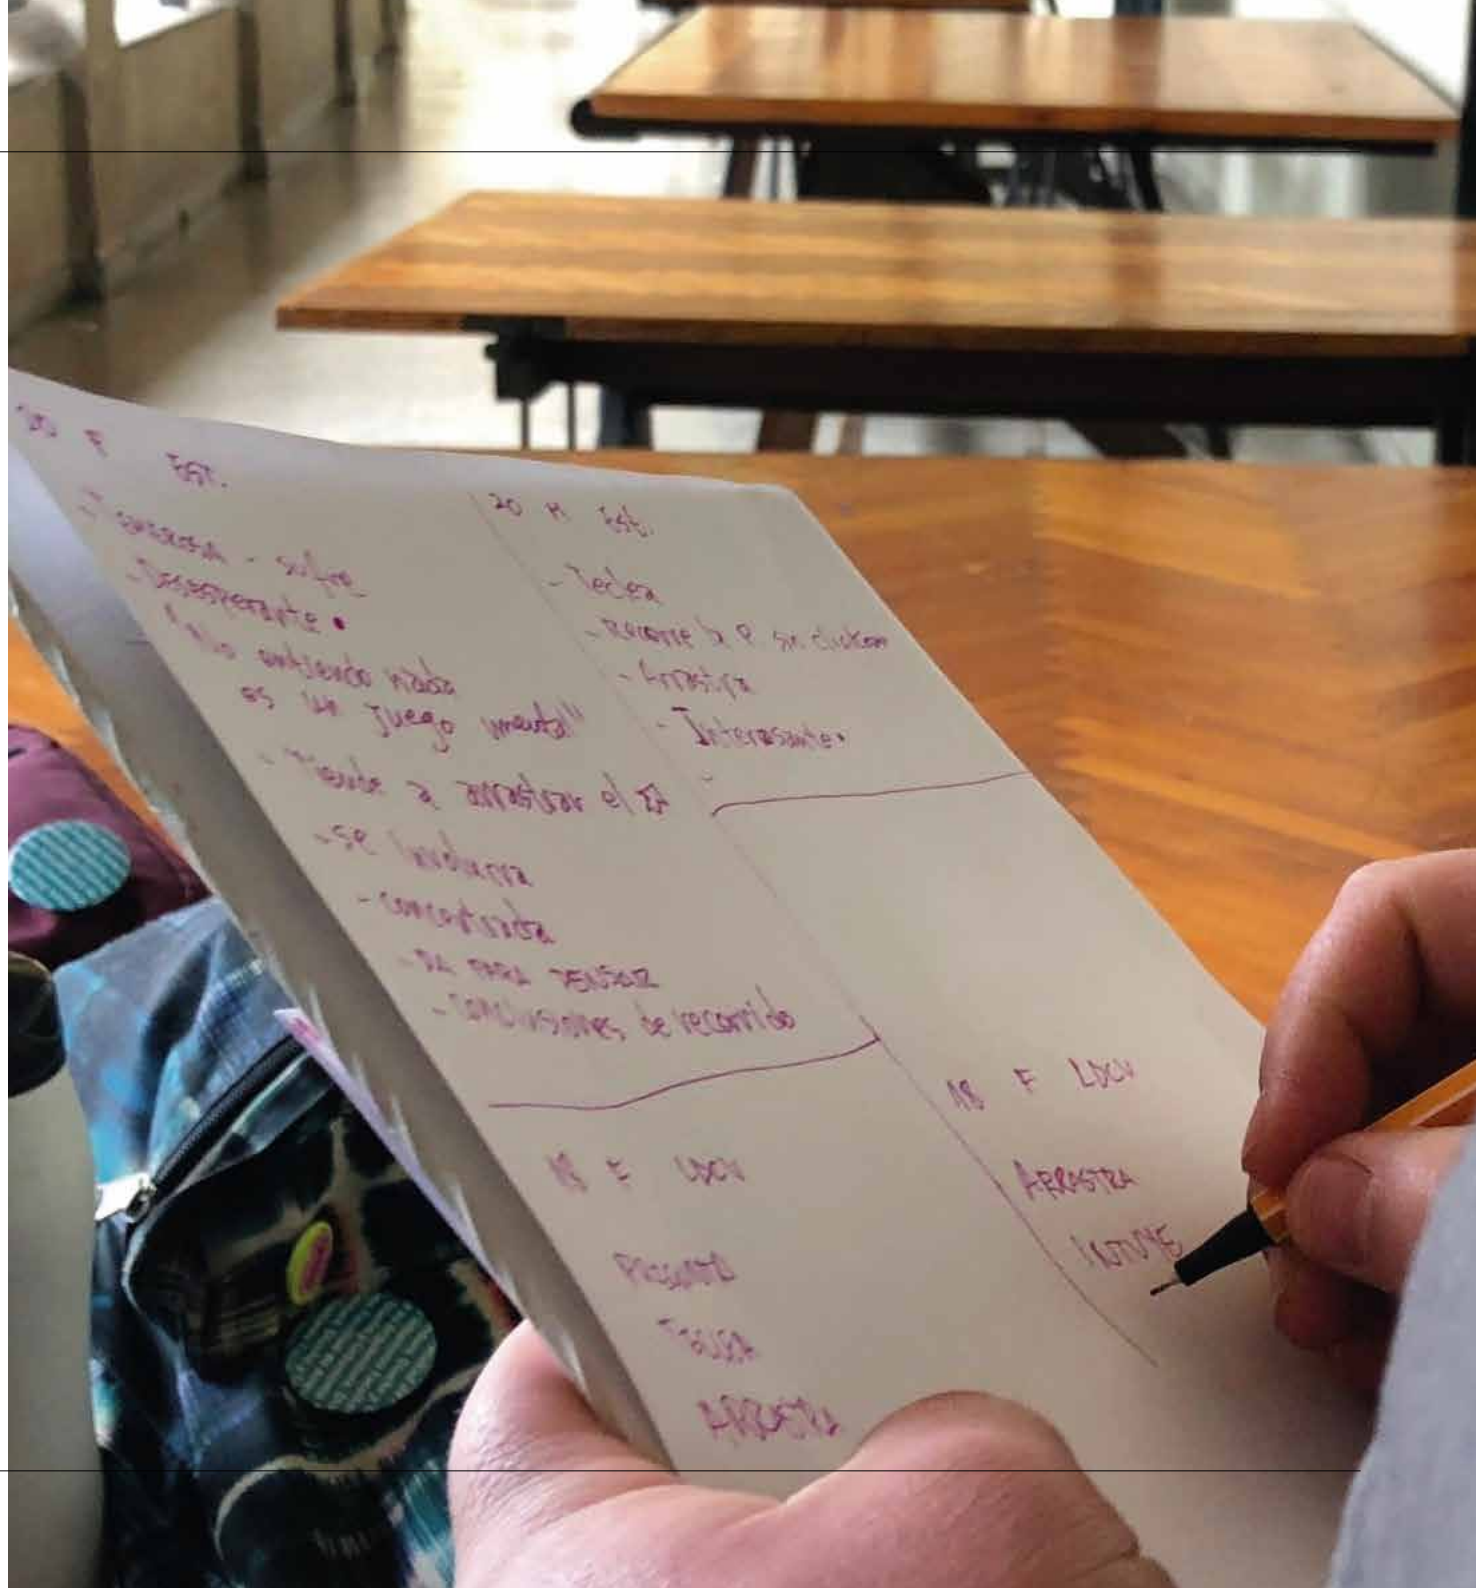 20 F EST.
- Temerosa - sufre
- Desesperante.
"No entiendo nada
es un juego mental"
- Tiende a arrastrar el
- se involucra
- concentrada
- DA PARA PENSAR
- Conclusiones de recorrido
20 M Est.
- Teclea
- Recorre la P. sin clickear
- Arrastra
- Interesante.
-
18 F LDCV
PREGUNTA
TECLEA
ARRASTRA
18 F LDCV
ARRASTRA
INTUYE